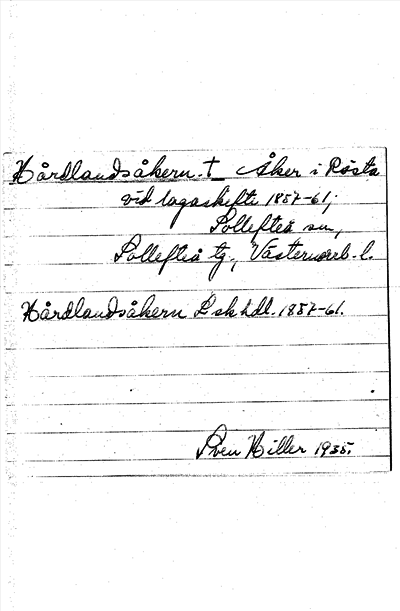 Hårdlandsåkern. † Åker i Rösta
vid lagaskifte 1857-61;
Sollefteå sn,
Sollefteå tg., Västernorrl. l.
Hårdlandsåkern L sk hdl. 1857-61.
Sven Hiller 1935.